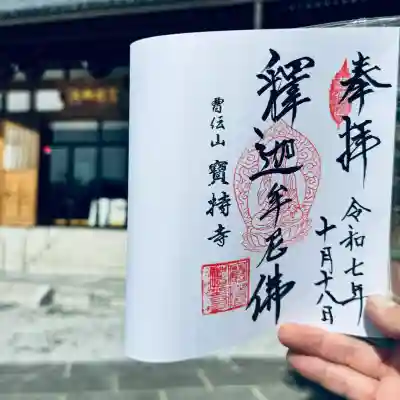 奉拝
令和七年
十月十八日
釋迦牟尼佛
曹伝山 寶持寺